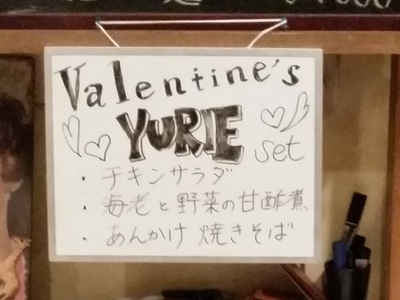 Valentine's
YURIE
set
・チキンサラダ
・海老と野菜の甘酢煮
・あんかけ焼きそば